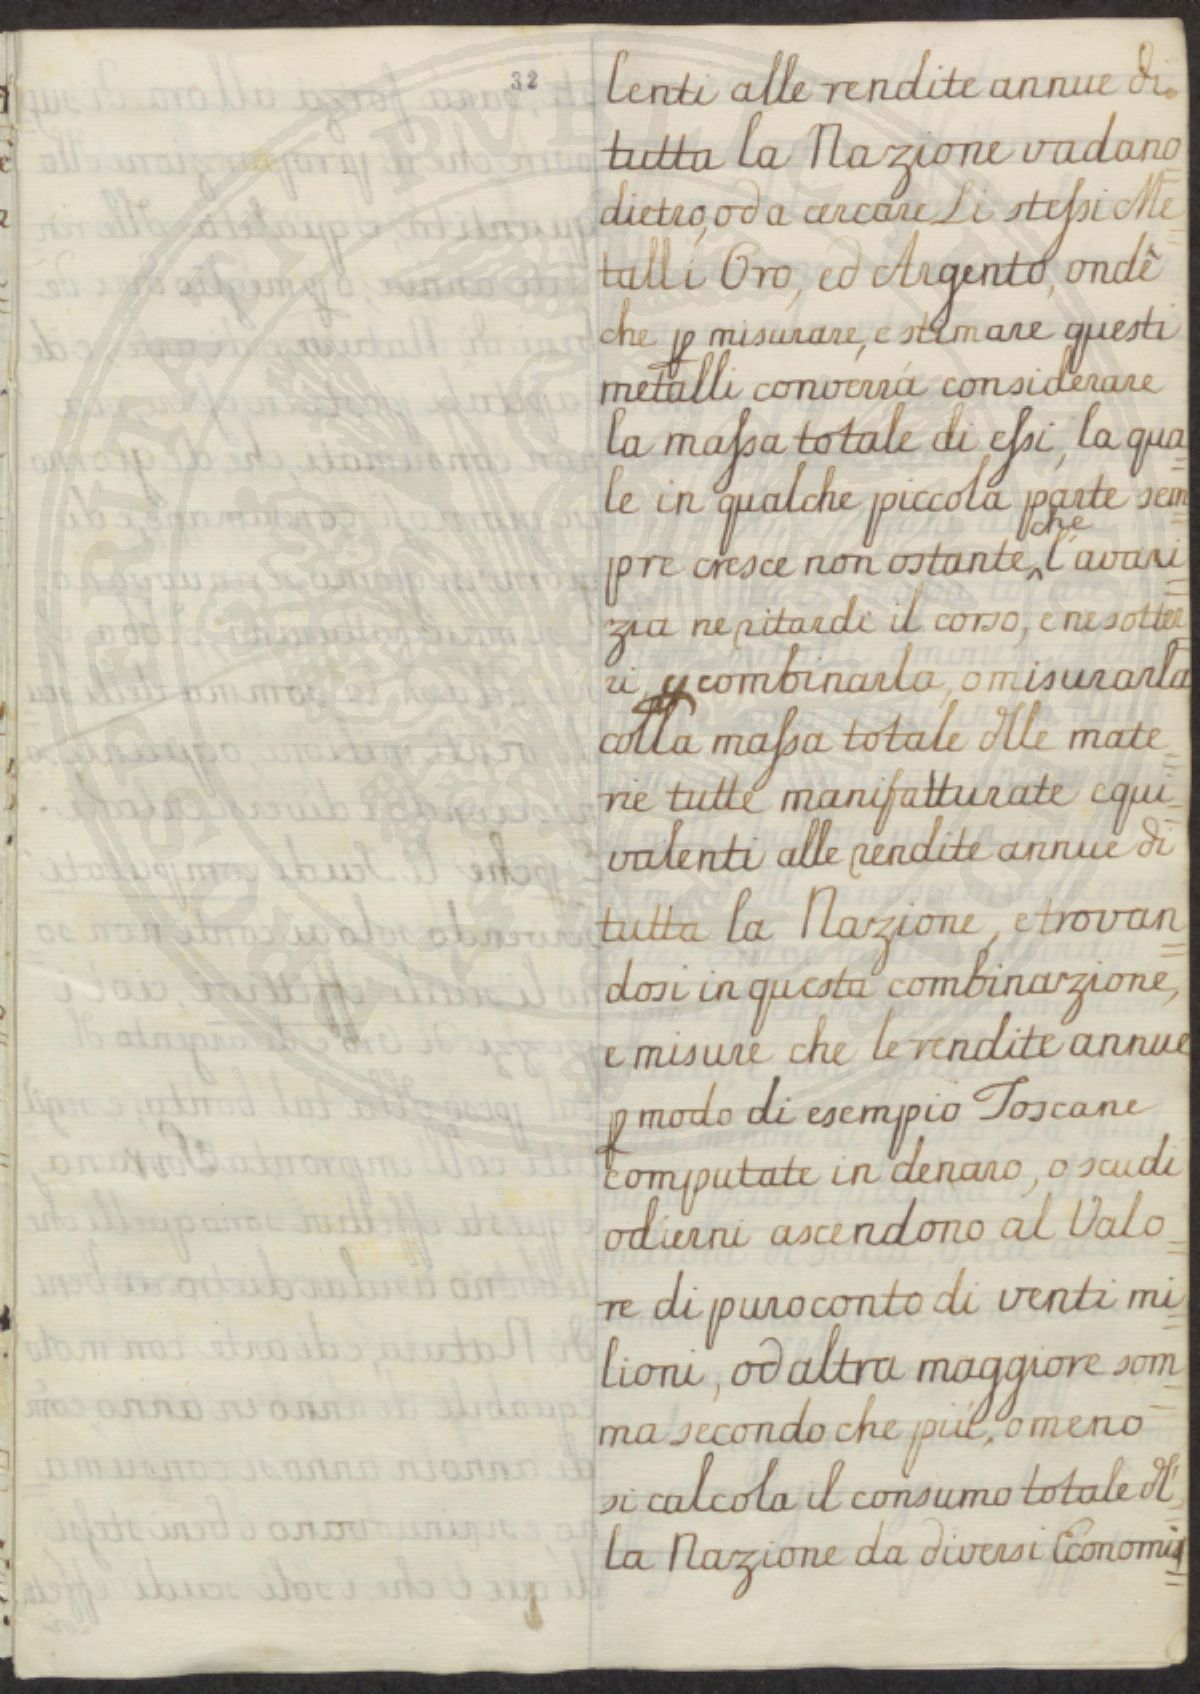 32
lenti alle rendite annue di
tutta la Nazione vadano
dietro, od a cercare Li stessi Me
talli Oro, ed Argento, ondè
che p misurare, e stimare questi
metalli converrá considerare
la massa totale di essi, la qua
le in qualche piccola parte sem
che
pre cresce non ostante, l'avari
zia ne ritardi il corso, e ne sotter
ri, combinarla, o misurarla
colla massa totale dlle mate
rie tutte manifatturate equi
valenti alle rendite annue di
tutta la Nazione, e trovan
dosi in questa combinazione,
e misure che le rendite annue
p modo di esempio Toscane
computate in denaro, o scudi
odierni ascendono al Valo
re di puro conto di venti mi
lioni, od altra maggiore som
ma secondo che più, o meno
si calcola il consumo totale dl
la Nazione da diversi Economis